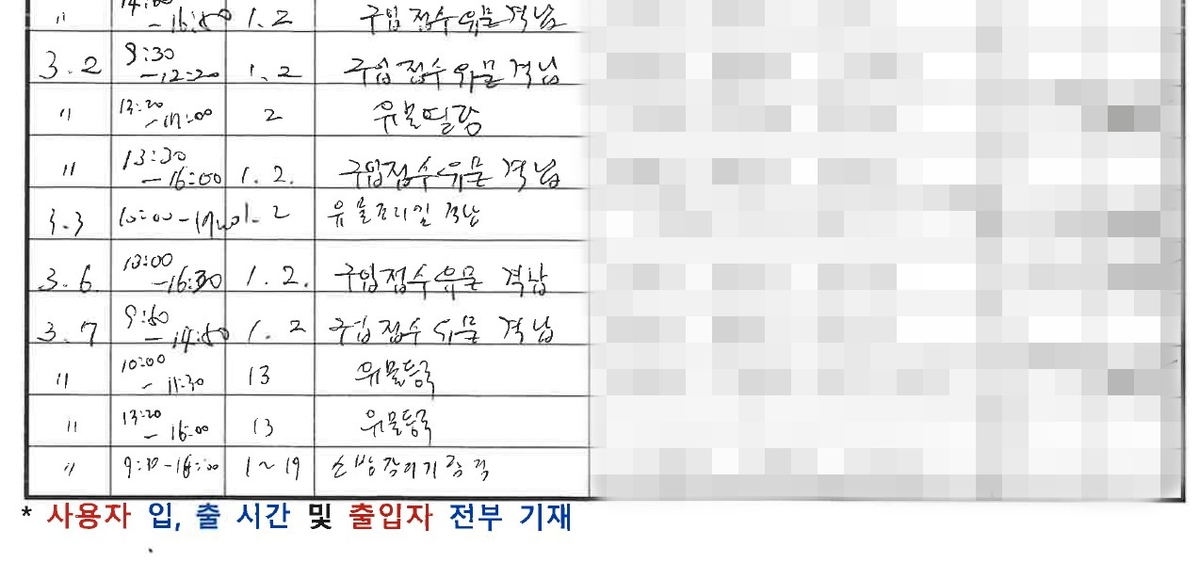 " 14:00 - 16:50 1.2 구입접수유물격납
3.2 9:30 - 12:20 1.2 구입접수유물격납
" 13:20 - 17:00 2 유물열람
" 13:30 - 16:00 1.2. 구입접수유물 격납
3.3 10:00 - 1.2 유물 격납
3.6. 13:00 - 16:30 1.2. 구입접수유물 격납
3.7 9:50 - 14:50 1.2 구입접수유물 격납
" 10:00 - 11:30 13 유물등록
" 13:20 - 16:00 13 유물등록
" 9:30 - 1~19 소방감지기
* 사용자 입, 출 시간 및 출입자 전부 기재